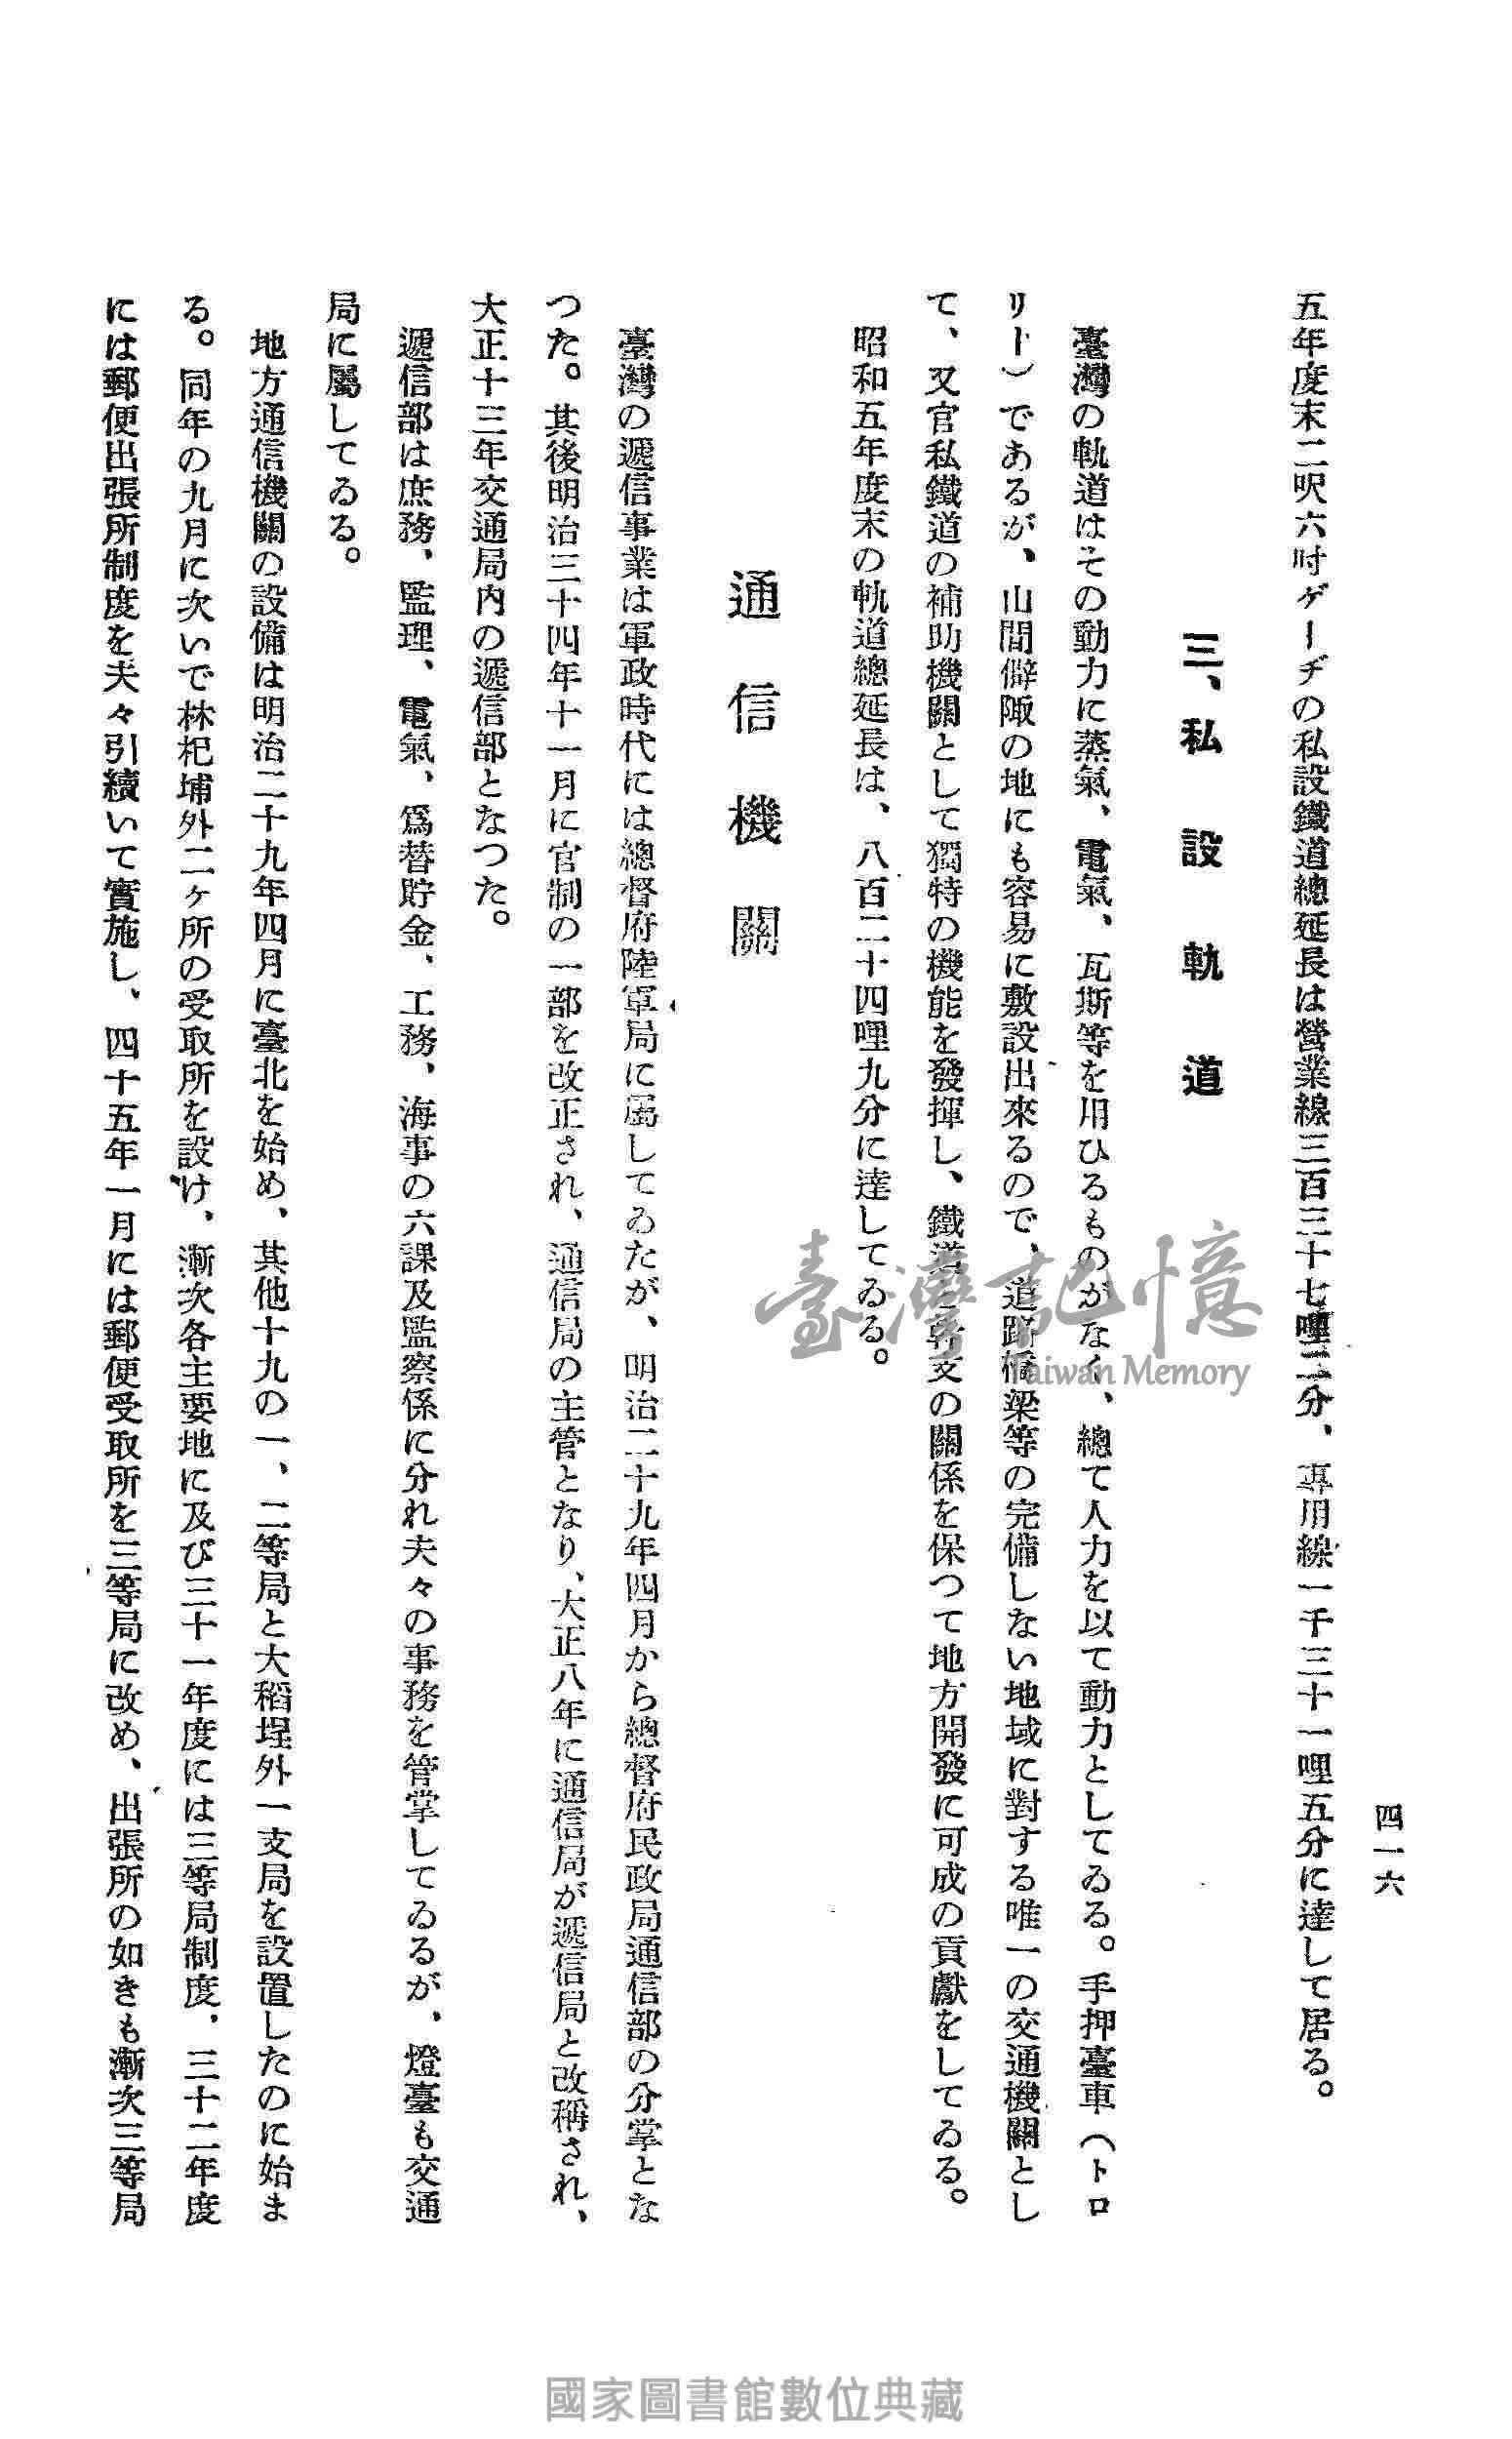 四一六
五年度末二呎六吋ゲーヂの私設鐵道總延長は營業線三百三十七哩二分、專用線一千三十一哩五分に達して居る。
三、私設軌道
臺灣の軌道はその動力に蒸氣、電氣、瓦斯等を用ひるものがなく、總て人力を以て動力としてゐる。手押臺車（トロ
リー）であるが、山間僻陬の地にも容易に敷設出來るので、道路橋梁等の完備しない地域に對する唯一の交通機關とし
て、又官私鐵道の補助機關として獨特の機能を發揮し、鐵道と幹支の關係を保つて地方開發に可成の貢獻をしてゐる。
昭和五年度末の軌道總延長は、八百二十四哩九分に達してゐる。
通信機關
臺灣の遞信事業は軍政時代には總督府陸軍局に屬してゐたが、明治二十九年四月から總督府民政局通信部の分掌とな
つた。其後明治三十四年十一月に官制の一部を改正され、通信局の主管となり、大正八年に通信局が遞信局と改稱され、
大正十三年交通局內の遞信部となつた。
遞信部は庶務、監理、電氣、爲替貯金、工務、海事の六課及監察係に分れ夫々の事務を管掌してゐるが、燈臺も交通
局に屬してゐる。
地方通信機關の設備は明治二十九年四月に臺北を始め、其他十九の一、二等局と大稻埕外一支局を設置したのに始ま
る。同年の九月に次いで林杞埔外二ヶ所の受取所を設け、漸次各主要地に及び三十一年度には三等局制度、三十二年度
には郵便出張所制度を夫々引續いて實施し、四十五年一月には郵便受取所を三等局に改め、出張所の如きも漸次三等局
臺灣記憶
Taiwan Memory
國家圖書館數位典藏